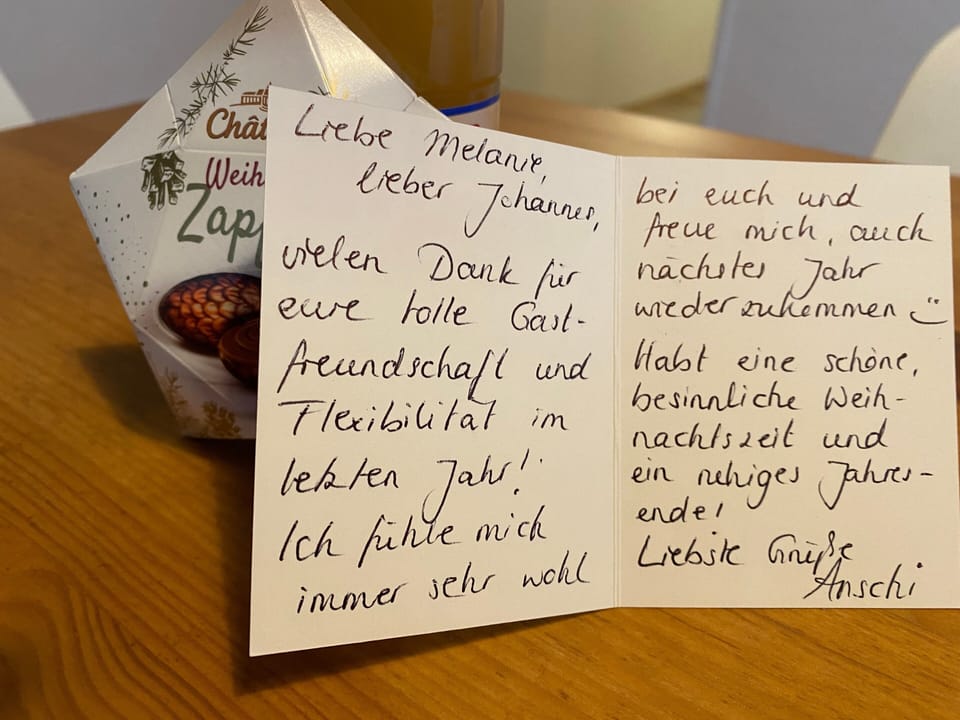 Chât
Weih
Zapf
Liebe Melanie,
lieber Johannes,
vielen Dank für
eure tolle Gast-
freundschaft und
Flexibilität im
letzten Jahr!
Ich fühle mich
immer sehr wohl
bei euch und
freue mich, auch
nächstes Jahr
wiederzukommen
Habt eine schöne,
besinnliche Weih-
nachtszeit und
ein ruhiges Jahres-
ende!
Liebste Grüße
Anschi